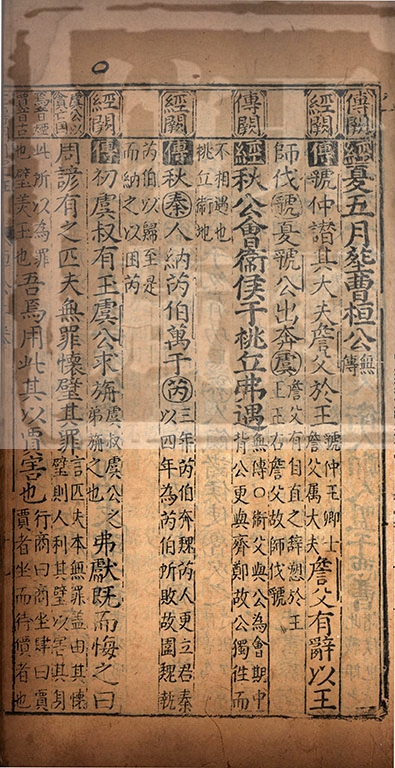 傳闕
經夏五月葬曹桓公 無傳
經闕
傳虢仲譖其大夫詹父於王 虢仲王卿士
詹父属大夫 詹父有辭以王
師伐虢夏虢公出奔虞 詹父有自直之辭愬於王
右詹父故師伐虢
傳闕
經秋公會衞侯于桃丘弗遇 無傳○衞父與公為會期中
背公更與齊鄭故公獨往而
不相遇也
桃丘衞地
經闕
傳秋秦人納芮伯萬于芮 三年芮伯奔魏芮人更立君秦
以四年為芮伯所敗故圍魏執
芮伯以歸至是
而納之以困芮
經闕
傳初虞叔有玉虞公求旃 虞叔虞公之
弟旃之也 弗獻既而悔之曰
虞公以
貪亡国
周諺有之匹夫無罪懷璧其罪 言匹夫本無罪盖由其懷
璧則人利其璧以害其身
此所以為罪
也璧美玉也 吾焉用此其以賈害也 行商曰商坐肆曰賈
賈者坐而待價者也